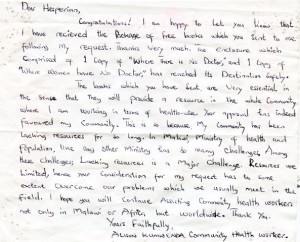 Dear Hesperian,
Congratulations! I am happy to let you know that
I have recieved the Package of free books which you sent to me
following my request. Thanks Very much. The enclosure which
Comprised of 1 Copy of "Where There is No Doctor," and 1 Copy of
"Where Women have No Doctor," has reached its Destination safely.
The books which you have sent are Very essential in
the sense that They will provide a resource in the whole Community
where I am working in terms of health. Your approval has indeed
favoured my Community. This is because my Community has been
Lacking resources for so long. In Malawi Ministry of health and
Population, like any other Ministry has so many Challenges. Among
these Challenges; Lacking resources is a Major Challenge. Resources are
Limited, hence your Consideration for my request has to some
extent Overcome our problems which we usually meet in the
field. I hope you will Continue Assisting Community health workers
not only in Malawi or Africa, but worldwide. Thank You.
Yours Faithfully,
Community Health worker.